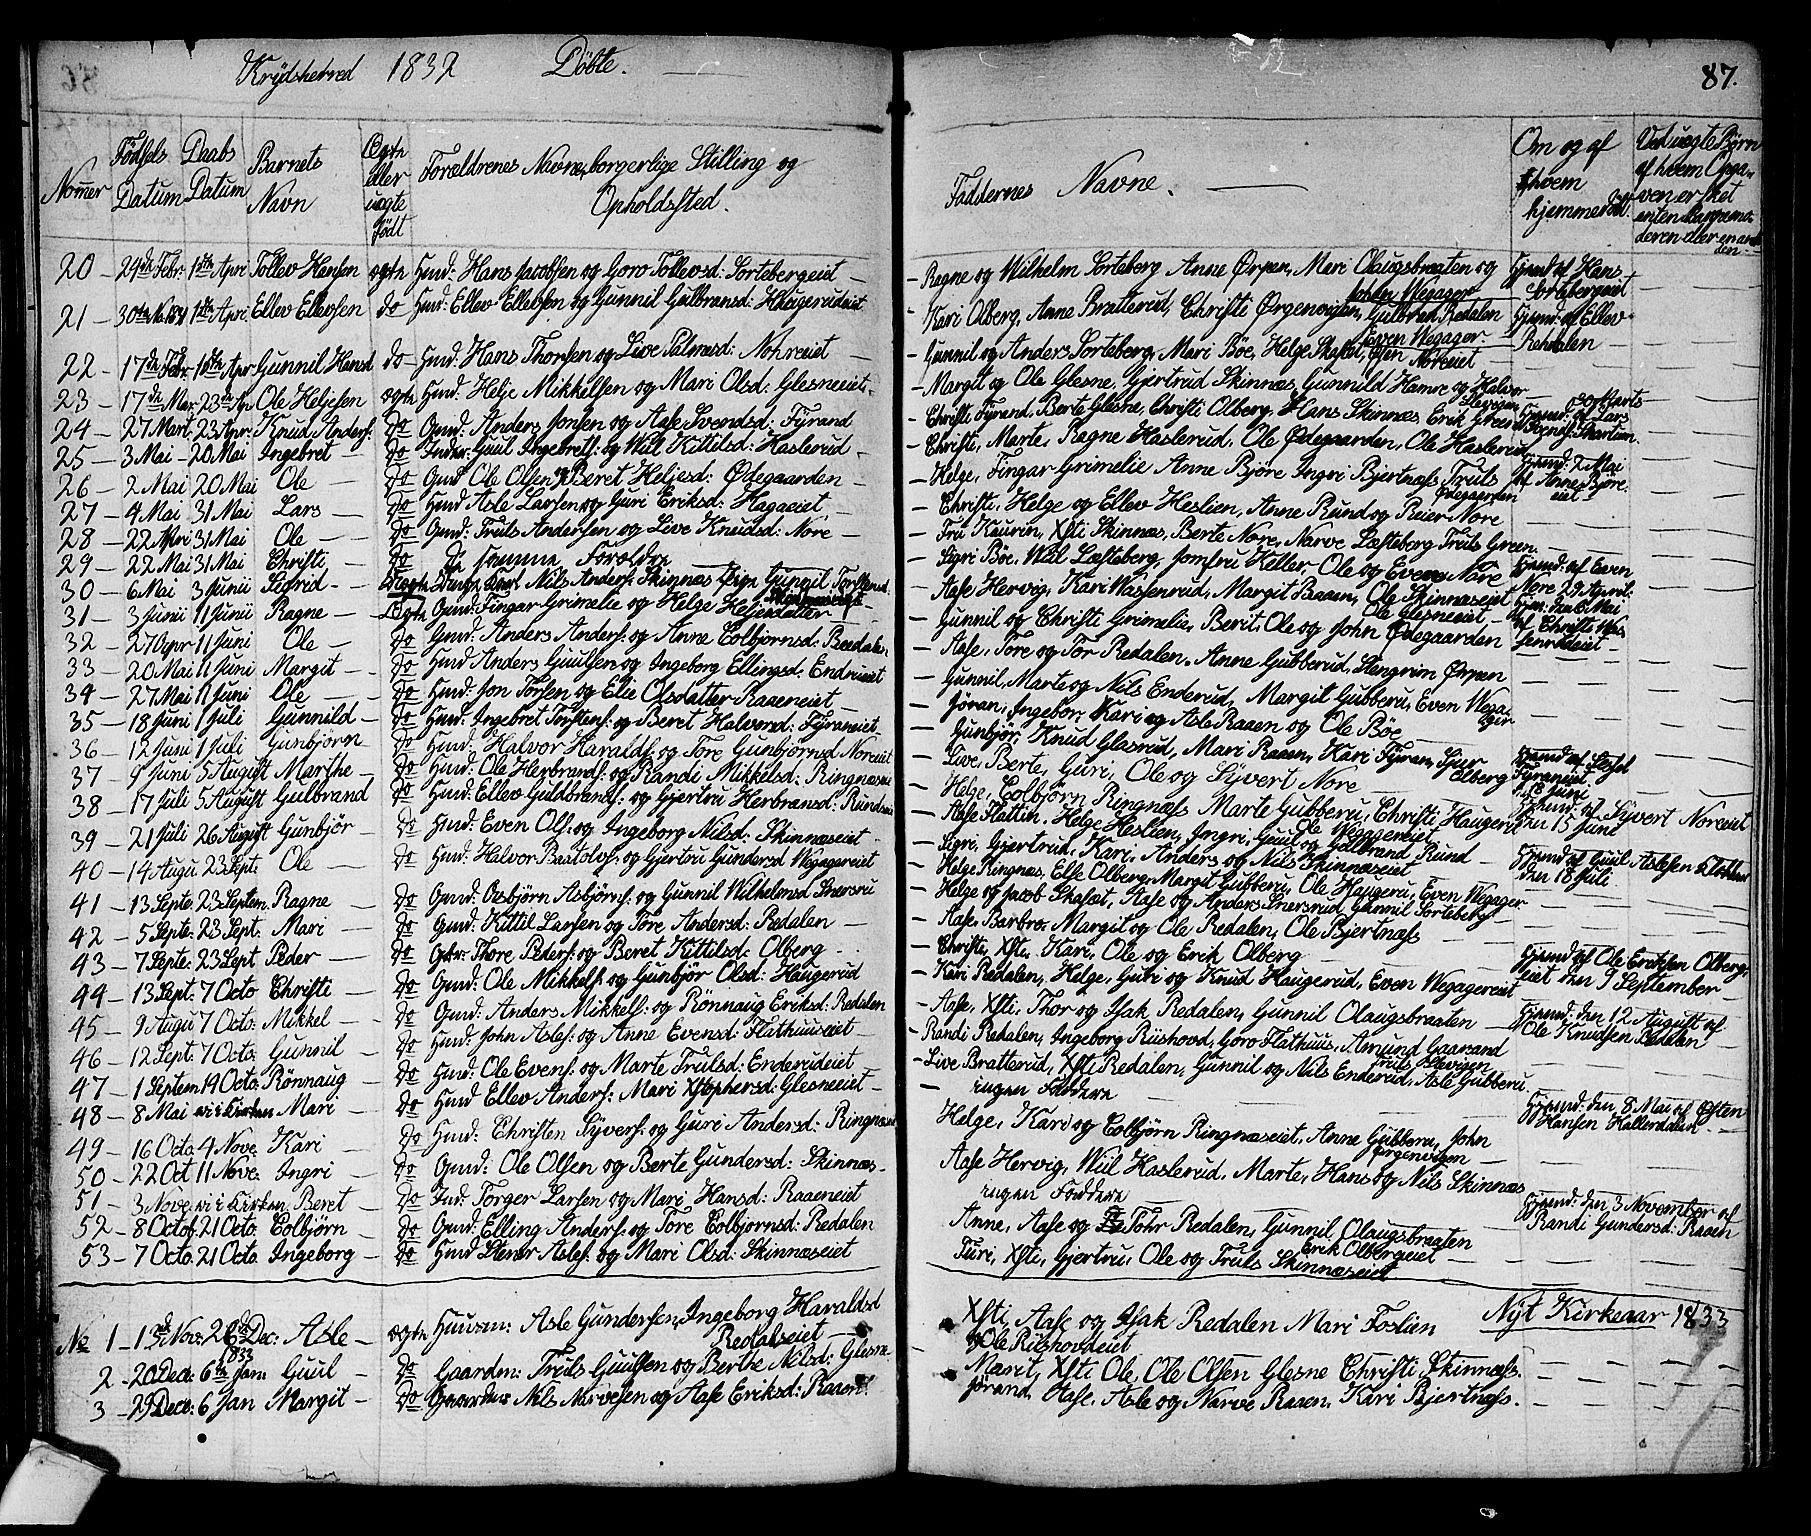 Krydsherred 1832 Döbte.
87.
Nommer
Födsels Datum
Daabs Datum
Barnets Navn
Ægte eller uægte födt
Forældrenes Navne, borgerlige Stilling og Opholdssted.
Faddernes Navne.
Om og af hvem hjemmedöbt
Ved uægte Börn af hvem Opgaven er sket enten Barnemoderen eller en anden
20 – 24de Febr: 1ste Apri Tollev Hansen ægte Hmd: Hans Jacobsen og Goro Tollevsd: Sortebergeiet – Ragne og Wilhelm Sorteberg Anne Ørpen, Mari Olaugsbraaten og John Wegager Hjemd af Hans Sortebergeiet –
21 – 30te No. 1831 1ste Apri Ellev Ellevsen do Hmd: Ellev Ellevsen og Gunnil Gulbransd: Haugerudeiet – Kari Olberg, Anne Bratterud, Christi Ørgenvigen, Gulbrand Redalen Even Wegager – Hjemd: af Ellev Redalen –
22 – 17de Febr 10de Apr Gunnil Hansd do Hmd: Hans Thorsen og Live Palmesd: Nohreeiet – Gunnil og Anders Sorteberg, Mari Böe, Helge Skafet, Osten Noreeiet
23 – 17de Mar 23de Apr Ole Heljesen ægte Hmd: Helje Mikkelsen og Mari Olsd: Glesneeiet – Margit og Ole Glesne, Gjertrud Skinnæs, Gunnild Hamre og Halvor Slevegen
24 – 27 Mart 23 Apr: Knud Andersf. do Gmd: Anders Jonsen og Aase Svendsd: Fÿrand – Christi Fÿrand, Berte Glesne, Christi Olberg, Hans Skinnæs Erik Green Hjemd: 30 Marts af Lars Svendsf: Skartum.
25 – 3 Mai – 20 Mai Ingebret – do Inder: Guul Ingebretf: og Wiil Kittilsd: Haslerud – Christi, Marte, Ragne Haslerud, Ole Ødegaarden, Ole Haslerud
26 – 2 Mai 20 Mai Ole – do Gmd Ole Olsen og Beret Heljesd: Ødegaarden – Helge, Fingar Grimelie Anne Björe Ingri Bjertnæss Truls Ødegaarden Hjemd: 2 Mai af Anne Björeeiet –
27 – 4 Mai 31 Mai Lars – do Hmd Asle Larsen og Guri Eriksd: Hagaeiet – Christi, Helge og Ellev Heslien, Anne Rund og Reier Nore
28 – 22 Apri 31 Mai Ole – do Gmd: Truls Andersen og Live Knudsd: Nore – Fru Kaurin, Xsti Skinnæs, Berte Nore, Narve Læsteberg Truls Green
29 – 22 Mai 31 Mai Christi – do De samme Forældre – Sigri Böe, Wiil Læsteberg, Jomfru Keller Ole og Even Nore Hjemd: af Even Nore 29 April
30 – 6 Mai 3 Junii Sigrid – Uægte Ungk: Karl Nils Andersf: Skinnæs Pige Gunnil Torstensd – Aase Hervig, Kari Wassenrud, Margit Raaen, Ole Skinnæseiet Ole Glesneeiet – Hjem: den 6 Mai af Christi Wassenrudeiet –
31 – 3 Junii 11 Junii Ragne – Ægte Gmd: Fingar Grimelie og Helge Heljesdatter – Gunnil og Christi Grimelie, Berit, Ole og John Ødegaarden
32 – 27 Apr 11 Juni Ole – do Gmd: Anders Andersf: og Anne Colbjörnsd: Reedalen – Aase, Tore og Tor Redalen. Anne Gubberud, Stengrim Ørpen
33 – 20 Mai 11 Juni Margit – do Hmd Anders Guulsen og Ingeborg Ellingsd: Endrueiet – Gunnil, Marte og Nils Enderud, Margit Gubberu, Even Wegager
34 – 27 Mai 11 Juni Ole – do Hmd: Jon Torsen og Elie Olsdatter Raaeneiet – Jöran, Ingebor, Kari og Asle Raaen og Ole Böe
35 – 18 Juni 1 Juli Gunnild – do Hmd: Ingebret Torstensf: og Beret Halvorsd: Fÿraneiet – Gunbjör, Knud Glasrud, Mari Raaen, Kari Fÿran, Sjur Olberg Hjemd af Sissel Fÿraneiet d. 18 Juni
36 – 12 Juni 1 Juli Gunbjörn – do Hmd: Halvor Haraldf: og Tore Gunbjörnsd Noreeiet – Live, Berte, Guri, Ole og Sÿvert Nore
37 – 9 Juni 5 August Marthe – do Hmd: Ole Herbrandf: og Randi Mikkelsd: Ringnæseiet – Helge, Colbjörn Ringnæss Marte Gubberu, Christi Haugerud Hjemd: af Sÿvert Noreeiet den 15 Juni
38 – 17 Juli 5 August Gulbrand do Hmd: Ellev Guldbrandf: og Gjertru Herbransd: Rundeiet – Aase Flattin, Helge Heslien, Ingri, Guul og Gulbrand Rund
39 – 21 Juli 26 August Gunbjör – do Hmd: Even Olsf: og Ingeborg Nilsd: Skinnæseiet – Sigri, Gjertrud, Kari, Anders og Nils Skinnæseiet –
40 – 14 Augu 23 Sept: Ole – do Hmd: Halvor Baatolvsf: og Gjertru Gundersd Wegagereiet Helge Ringnæs, Else Olberg, Margit Gubberu, Ole Haugerei, Even Wegager Hjemd af Guul Aslesen den 18 Juli
41 – 13 Septe 23 Septem. Ragne – do Gmd: Osbjörn Asbjörnsf: og Gunnil Wilhelmsd Snersru – Helge og Jacob Skafset, Aase og Anders Snersrud Gunnil Sorteberg –
42 – 5 Septe 23 Sept. Mari – do Gmd: Kittil Larsen og Tore Andersd: Redalen – Aase, Barbro, Margit og Ole Redalen, Ole Bjertnæss
43 – 7 Septe: 23 Sept Peder – do Gdbr: Thore Pedersf: og Beret Kittilsd: Olberg – Christi, Xsti, Kari, Ole og Erik Olberg Hjemd af Ole Eriksen Olbergeiet den 9 September –
44 – 13 Sept: 7 Octo Christi – do Gmd: Ole Mikkelsf: og Gunbjör Olsd: Haugerud – Kari Redalen, Helge, Guri og Knud Haugerud, Even Wegagereiet
45 – 9 Augu 7 Octo: Mikkel – do Gmd: Anders Mikkelsf: og Rönnaug Eriksd: Redalen – Aase, Xsti, Thor og Isak Redalen, Gunnil Olaugsbraaten – Hjemd: den 12 August af Ole Knudsen Redalen –
46 – 12 Sept: 7 Octo: Gunnil – do Hmd: John Aslesf: og Anne Evensd: Flathuuseiet – Randi Redalen, Ingeborg Ruishovd, Goro Flathuus, Amund Gaarand Truls Slevigen
47 – 1 Septem 14 Octo: Rönnaug – do Hmd: Ole Evensf: og Marte Trulsd: Enderudeiet – Live Bratterud, Xsti Redalen, Gunnil og Nils Enderud, Asle Gubberu.
48 – 8 Mai ei i Kirken Mari – do Hmd Ellev Andersf: Mari Xstophersd: Glesneeiet – – ingen Faddere – Hjemd: den 8 Mai af Østen Hansen Hallerdalen
49 – 16 Octo. 4 Nove. Kari – do Hmd: Christen Sÿversf: og Guri Andersd: Ringnæseiet Helge, Kari og Colbjörn Ringnæseiet, Anne Gubberu, John Ørgenvigen
50 – 22 Oct 11 Nove: Ingri – do Gmd: Ole Olsen og Berte Gundersd: Skinnæs – Aase Hervig, Wiil Haslerud, Marte, Hans og Nils Skinnæs
51 – 3 Nove ei i Kirken Beret – do Ind: Torger Larsen og Mari Hansd: Raaeneiet ingen Faddere – Hjemd: den 3 November af Randi Gundersd: Raaen
52 – 8 Octo 21 Octo. Colbjörn – do Gmd: Elling Andersf: og Tore Colbjornsd: Redalen Anne, Aase og Tohr Redalen, Gunnil Olaugsbraaten
53 – 7 Octo 21 Octo. Ingeborg – do Hmd Stener Aslesf: og Mari Olsd: Skinnæseiet Turi, Xsti, Gjertru, Ole og Truls Skinnæseiet Erik Olbergeiet
Nyt Kirkeaar 1833
No 1 – 1ste Nov: 26de Dec: Asle – ægte Huusm: Asle Gundersen, Ingeborg Haraldsd Redalseiet – Xsti, Aase og Isak Redalen Mari Foslien og Ole Ruishovdeiet
2 – 20 Dec: 6te Jan: 1833 Guul – do Gaardm: Truls Guulsen og Berthe Nilsd: Glesne Marit, Xsti Ole, Ole Olsen Glesne Christi Skinnæss.
3 – 29 Dece: 6 Jan Margit – do Gaardm: Nils Narvesen og Aase Eriksd: Raaen. Jörand, Aase, Asle og Narve Raaen, Kari Bjertnæss.